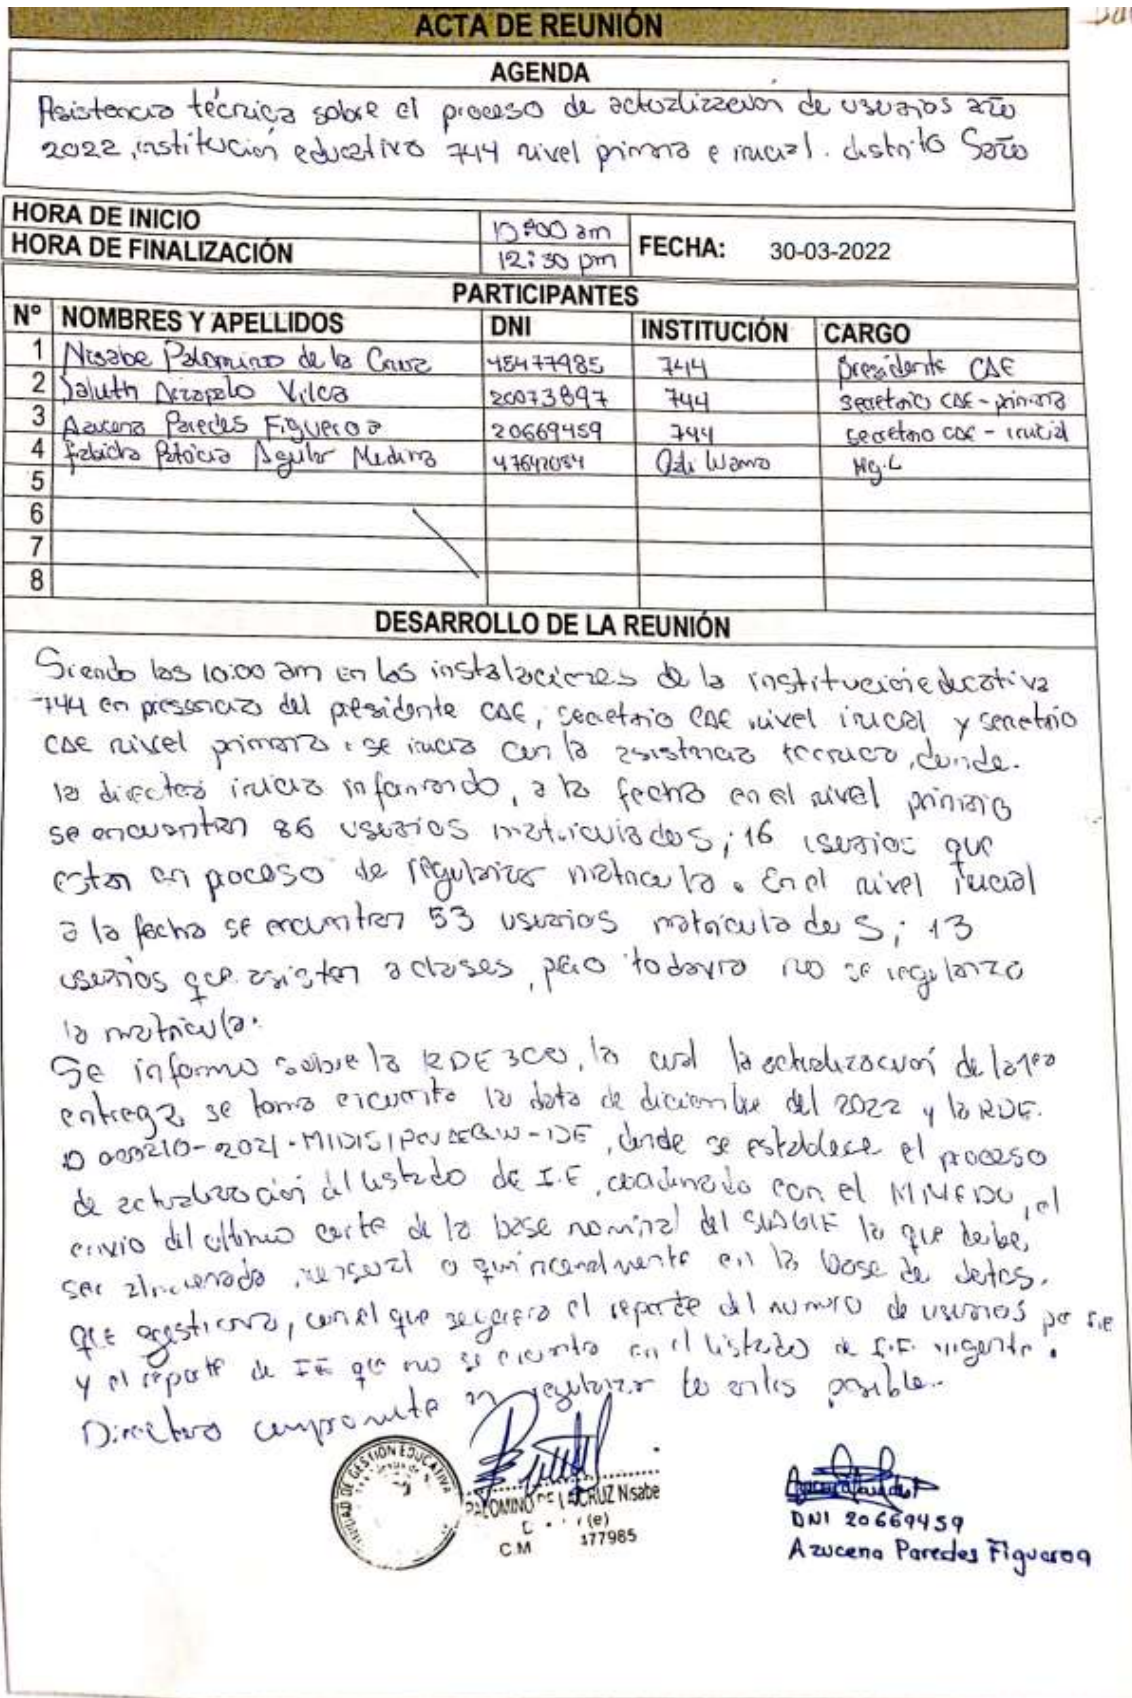 ACTA DE REUNIÓN
AGENDA
Asistencia técnica sobre el proceso de actualización de usuarios año
2022, institución educativa 744 nivel primaria e inicial. distrito Saño
HORA DE INICIO 10:00 am
HORA DE FINALIZACIÓN 12:30 pm
FECHA: 30-03-2022
PARTICIPANTES
N° NOMBRES Y APELLIDOS DNI INSTITUCIÓN CARGO
1 Nisabe Palomino de la Cruz 45477985 744 presidente CAE
2 Vilca 20073897 744 secretario CAE - primaria
3 Azucena Paredes Figueroa 20669459 744 secretario CAE - inicial
4 Patricia Aguilar Medina Qali Warma
5
6
7
8
DESARROLLO DE LA REUNIÓN
Siendo las 10:00 am en las instalaciones de la institución educativa
744 en presencia del presidente CAE, secretario CAE nivel inicial y secretario
CAE nivel primaria se inicia con la asistencia tecnica, donde.
la directora inicia informando, a la fecha en el nivel primaria
se encuentran 86 usuarios matriculados; 16 usuarios que
estan en proceso de regularizar matricula. En el nivel inicial
a la fecha se encuentran 53 usuarios matriculados; 13
usuarios que asisten a clases, pero todavia no se regulariza
la matricula.
Se informo sobre la RDE 300, la cual la actualización de la 1ra
entrega se toma encuenta la data de diciembre del 2022 y la RDE.
D000210-2021-MIDIS/PNAEQW-DE, donde se establece el proceso
de actualización del listado de I.E, coordinado con el MINEDU, el
envio del ultimo corte de la base nominal del SIAGIE lo que debe,
ser mensual o quincenalmente en la base de datos.
que, con el que se genera el reporte del numero de usuarios por IE
y el reporte de IE que no se encuentra en el listado de I.E. vigente.
Directora compromete en regularizar lo antes posible.
UNIDAD DE GESTIÓN EDUCATIVA
PALOMINO DE LA CRUZ Nisabe
(e)
C.M 477985
DNI 20669459
Azucena Paredes Figueroa